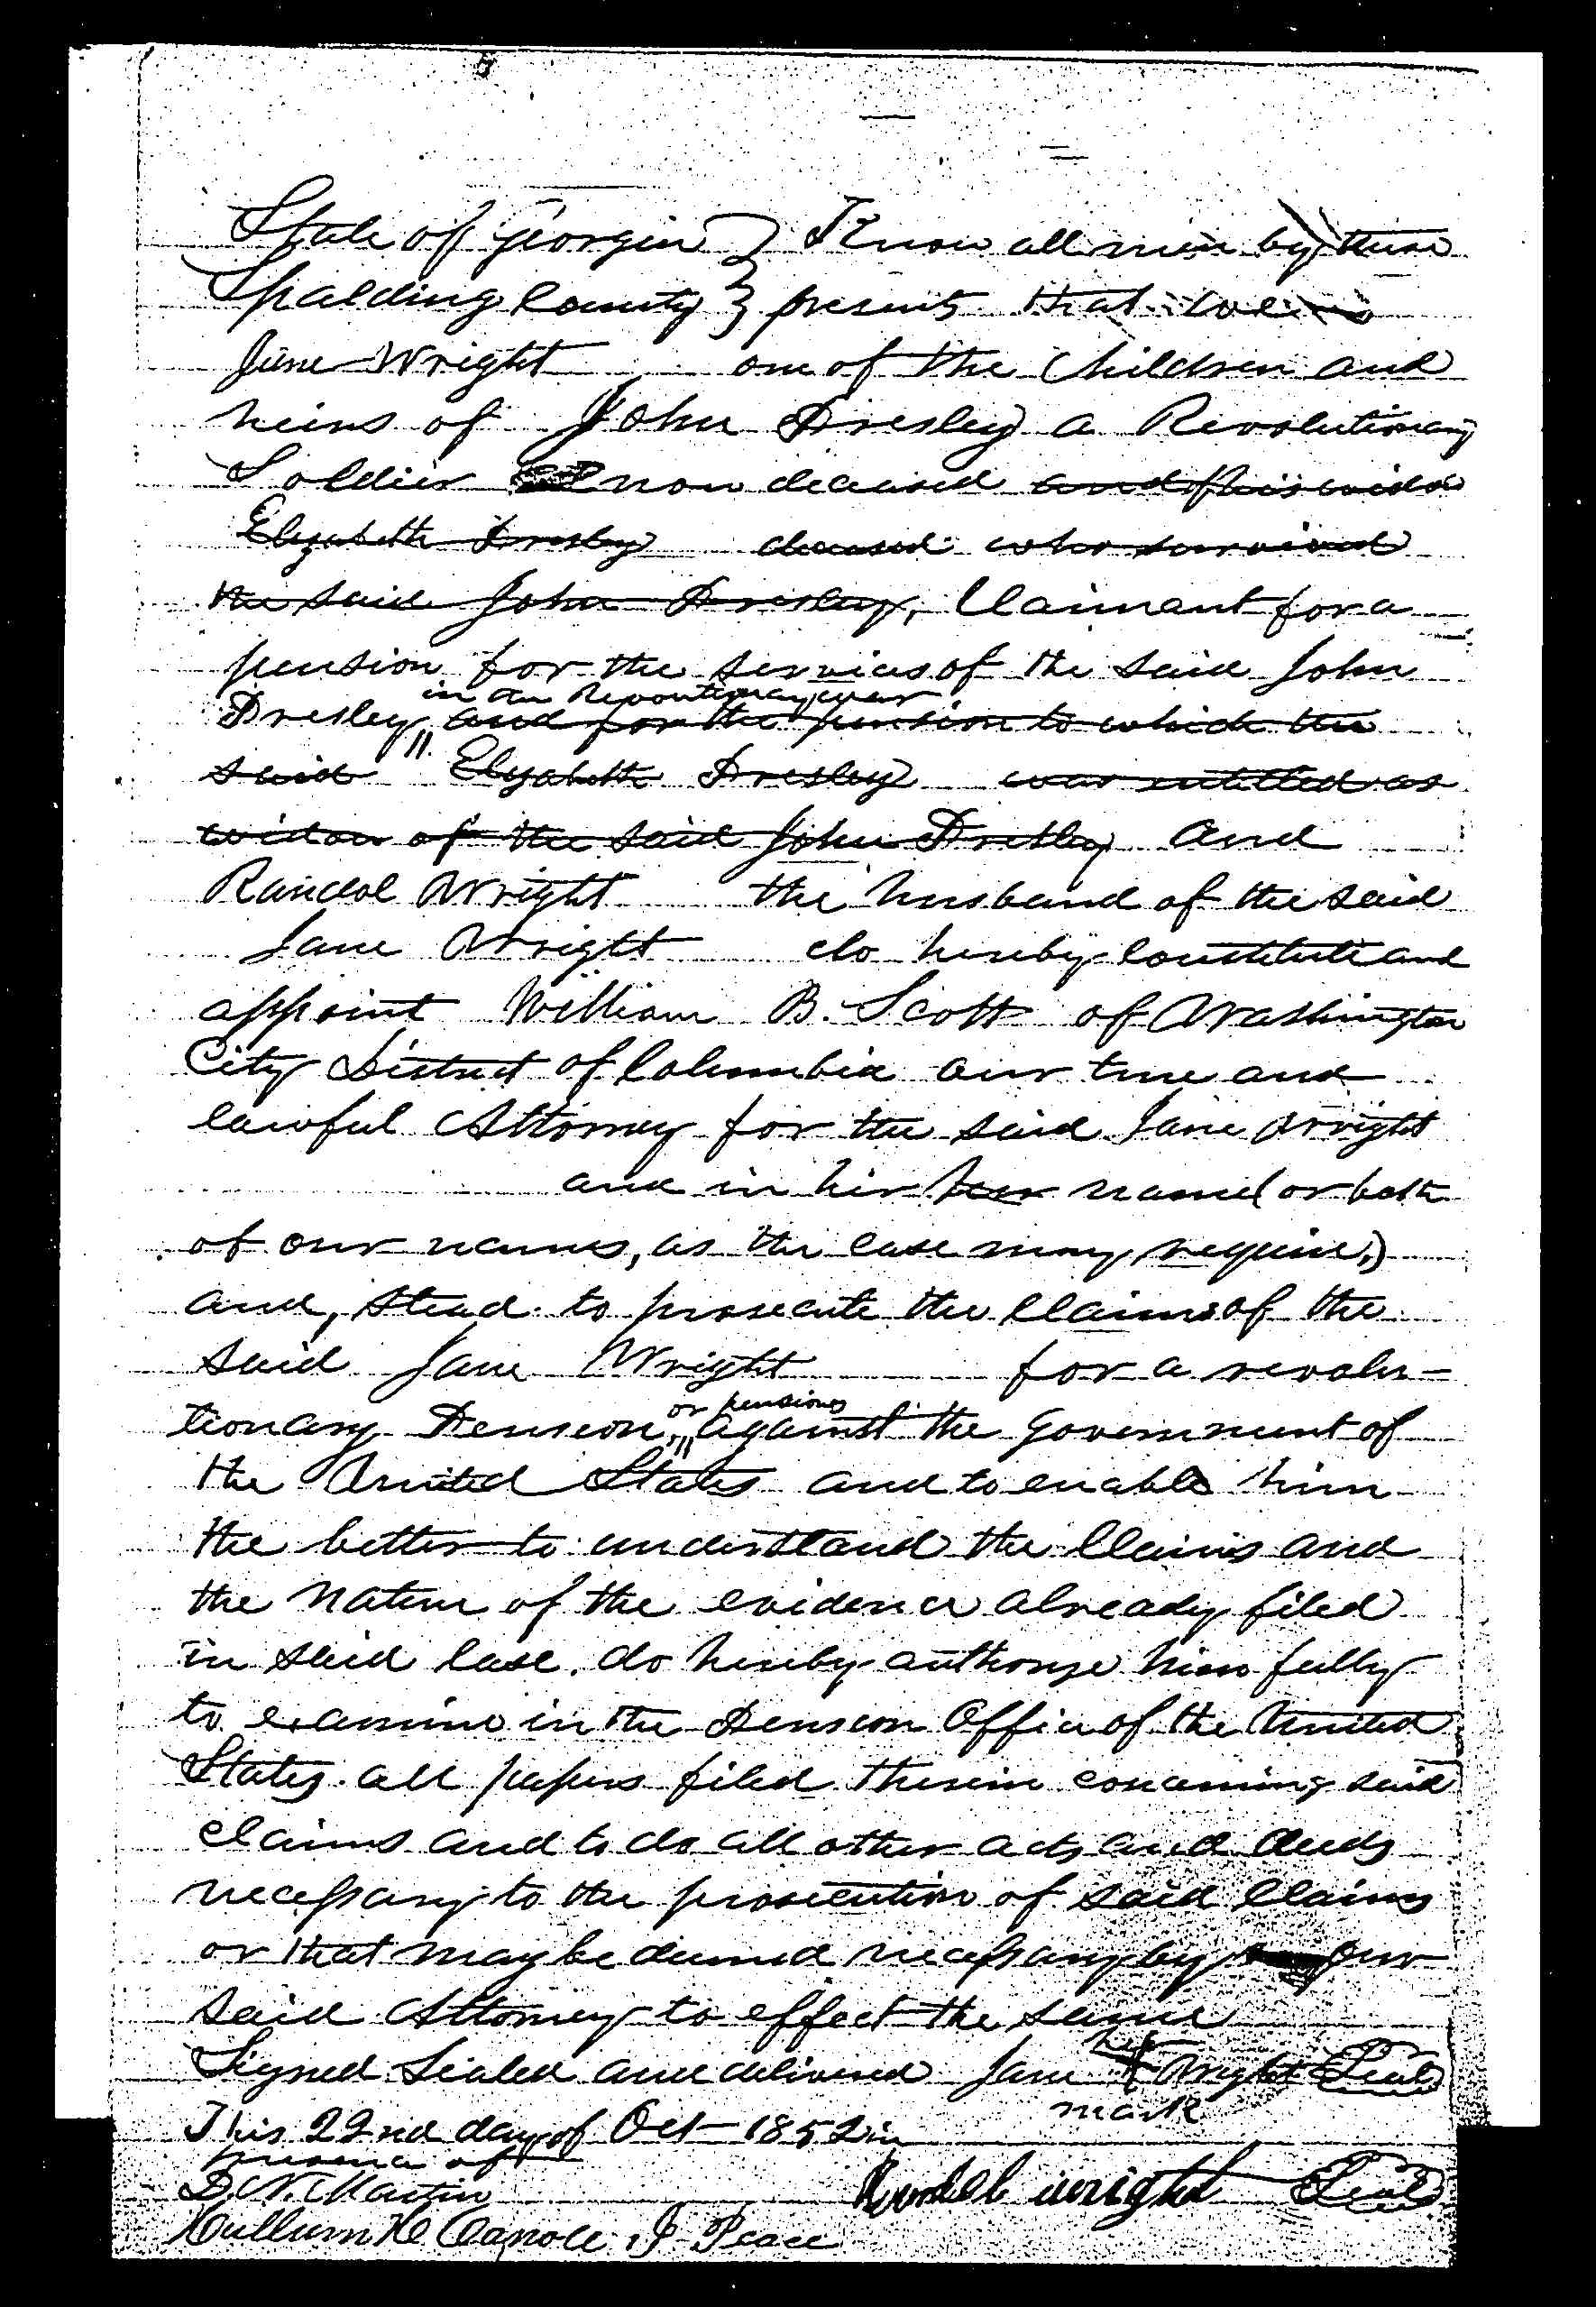 State of Georgia } Know all men by these
Spalding County } presents that we
Jane Wright one of the Children and
heirs of John Presley a Revolutionary
Soldier now deceased and of his widow
Elizabeth Presley deceased who survived
the said John Presley, Claimant for a
pension for the services of the said John
in the Revoutionary war
Presley, and for the pension to which the
said Elizabeth Presley was entitled as
widow of the said John Presley and
Randol Wright the husband of the said
Jane Wright do hereby constitute and
appoint William B. Scott of Washington
City District of Columbia our true and
lawful Attorney for the said Jane Wright
and in hir her name (or both
of our names, as the case may require,)
and, stead to prosecute the Claims of the
said Jane Wright for a revolu-
or pensions
tionary Pension, against the Government of
the United States and to enable him
the better to understand the Claims and
the nature of the evidence already filed
in said Case. do hereby authorize him fully
to examine in the Pension Office of the United
States all papers filed therein concerning said
claims and to do all other acts and deeds
necessary to the prosecution of said Claims
or that may be deemed necessary by our
said Attorney to effect the same
her
Signed Sealed and delivered Jane X Wright Seal
mark
This 22nd day of Oct 1852 in
presence of
D. N. Martin Randol wright Seal
J. Peace